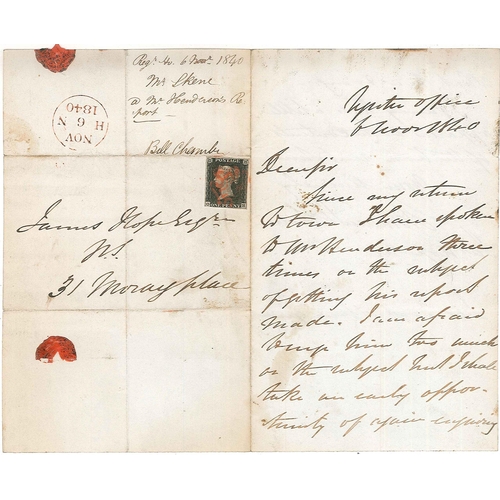 Regr Ho. 6 Novr 1840
Mr Skene
a Mr Henderson's Re
port
Bell Chamber
H 6 N
NOV
1840
ONE PENNY
James Hope Esqre
W.S.
31 Moray place
Register Office
6 Novr 1840
Dear Sir
Since my return
to town I have spoken
to Mr Henderson three
times on the subject
of getting his report
made. I am afraid
to urge him too much
on the subject but I shall
take an early oppor-
tunity of again enquiring